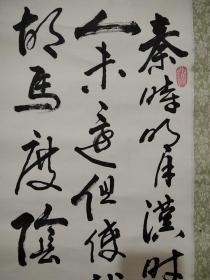 秦時明月漢時
人未還但使
胡馬度陰